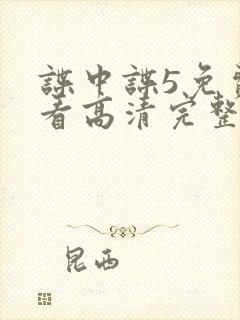 諜中諜5免
看高清完整
昆西